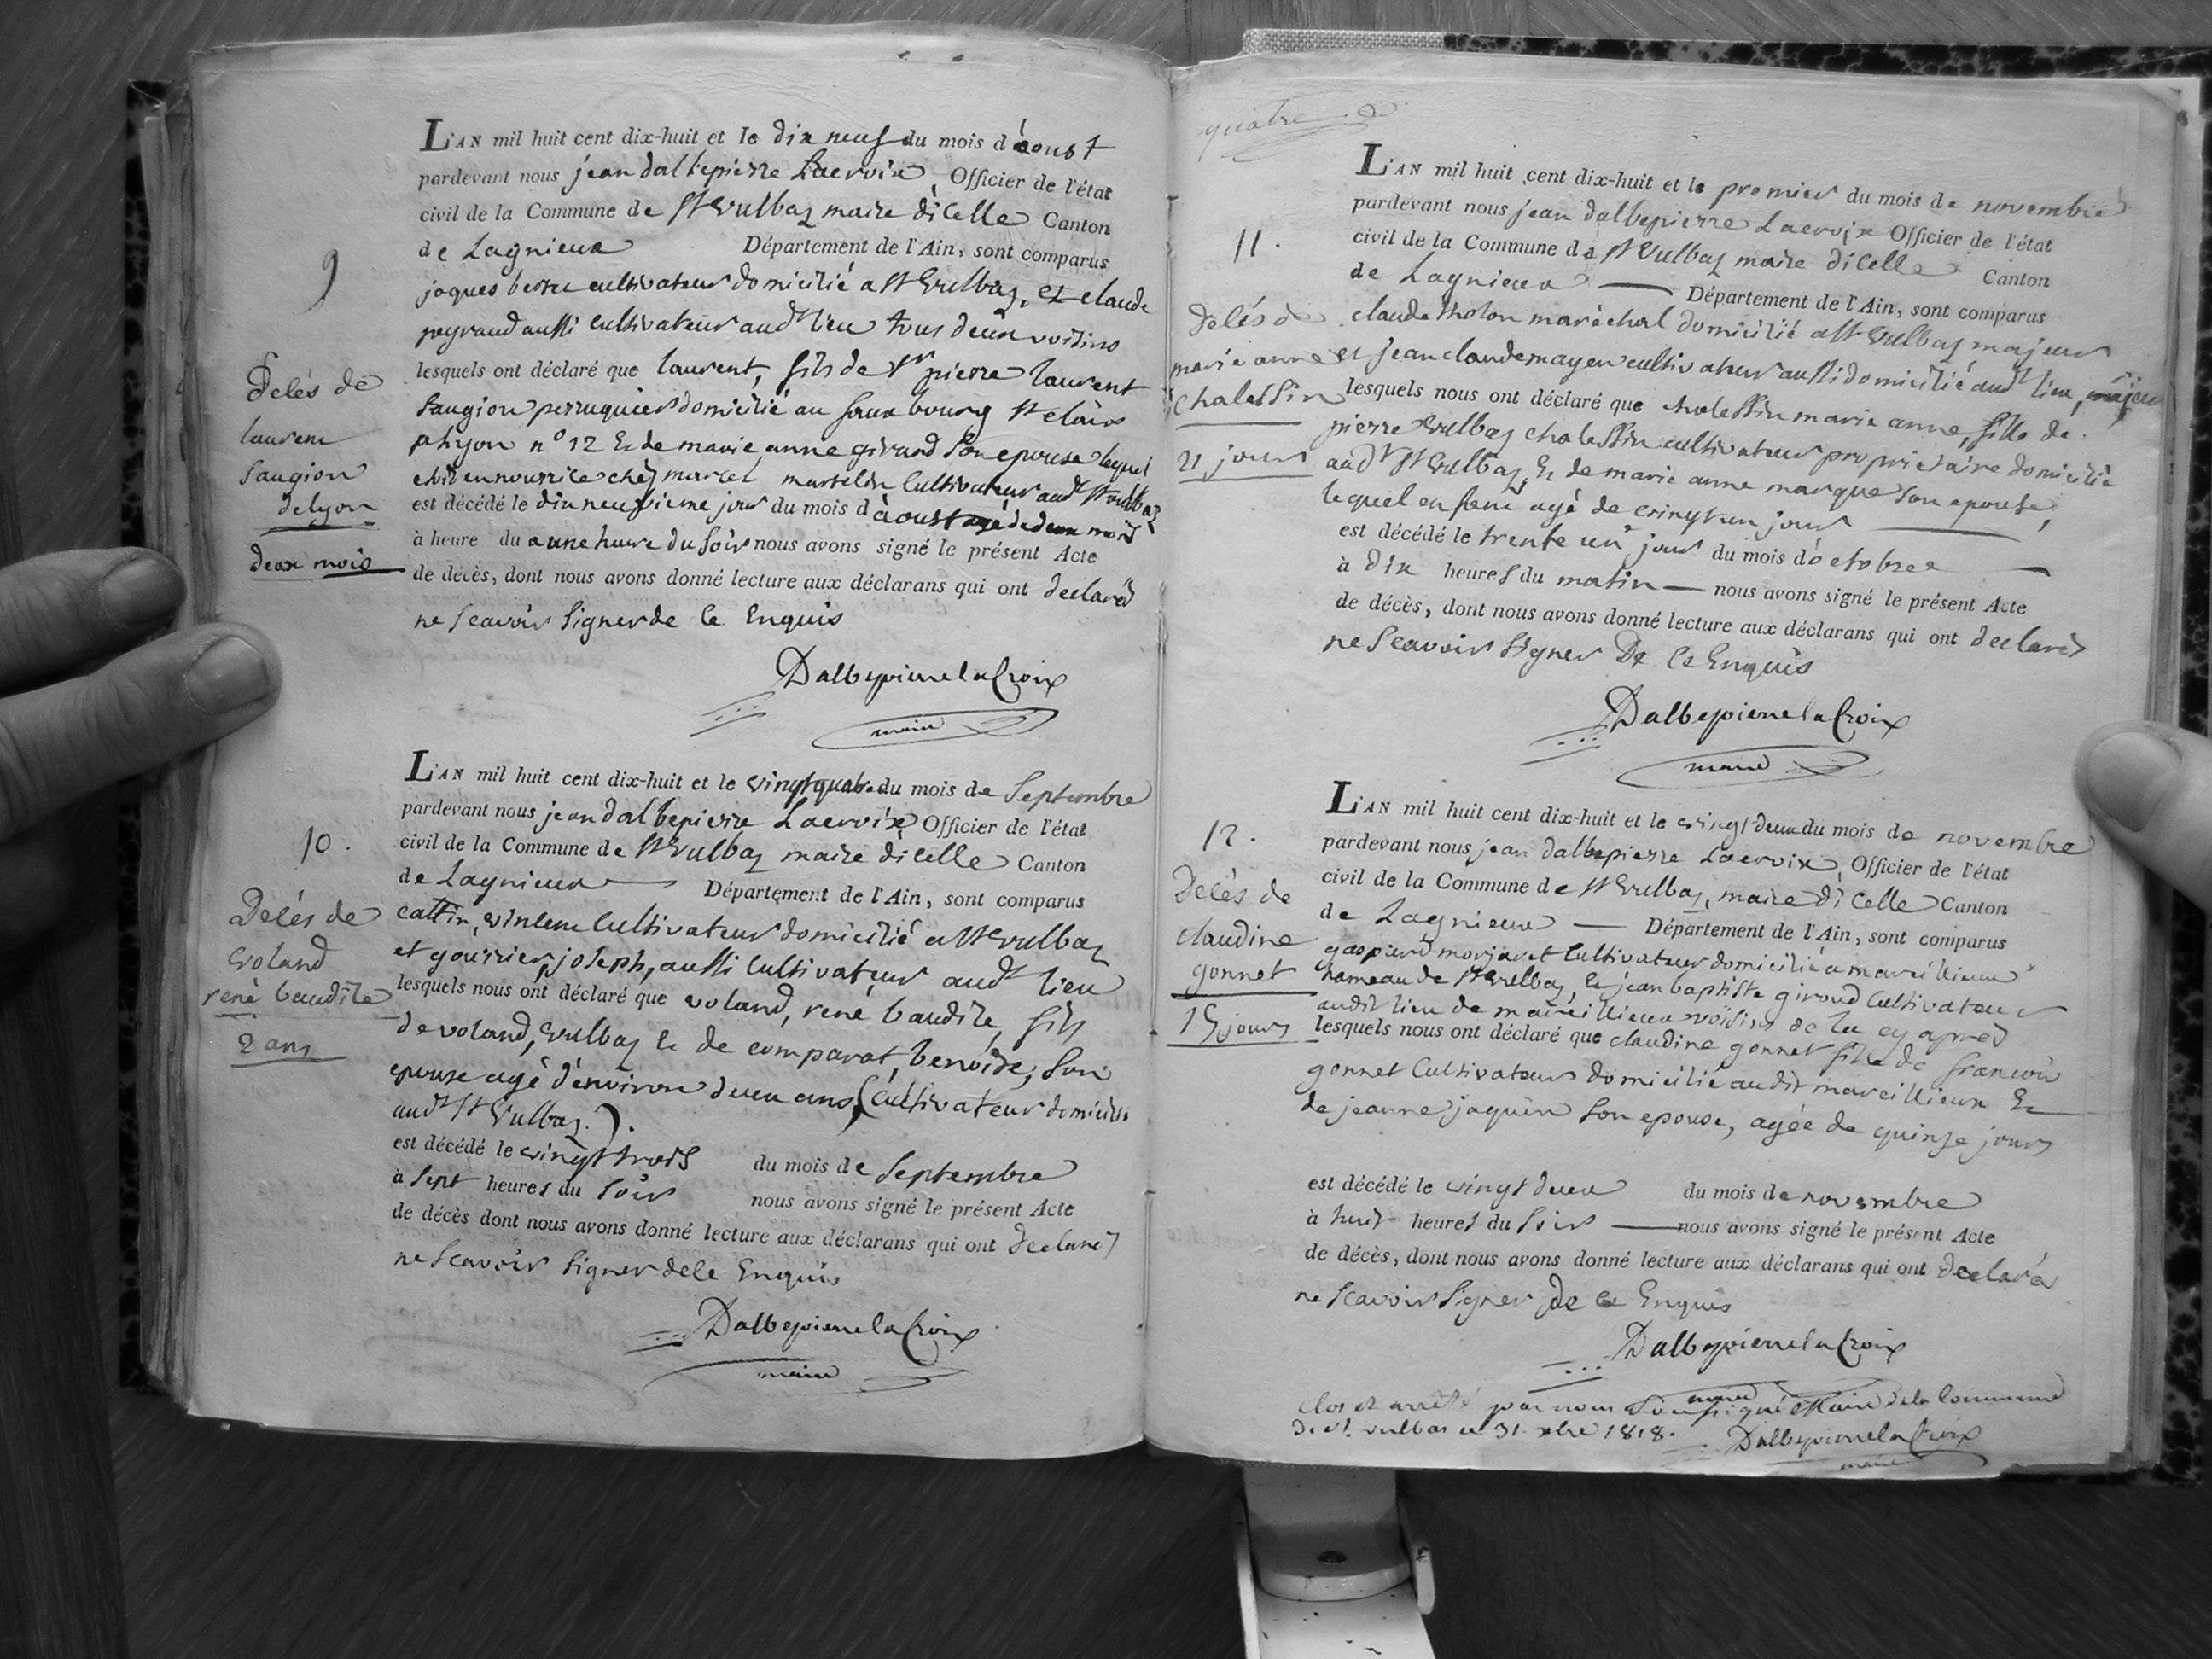 9
Delés de
laurent
Saugion
de lyon
deux mois
L'AN mil huit cent dix-huit et le dix neuf du mois d'àoust
pardevant nous jean dalbepierre Lacroix, Officier de l'état
civil de la Commune de St Vulbaz maire dicelle Canton
de Lagnieux Département de l'Ain, sont comparus
joques cultivateur domicilié a St Vulbaz, et claude
peyraud aussi cultivateur audt lieu tous deux voisins
lesquels ont déclaré que laurent, fils de Sr pierre laurent
Saugion perruquier domicilié au faux bourg St clair
a lyon n° 12 & de marie anne girard Son epouse lequel
etoit en nourrice chez marcel martelin Cultivateur audt St vulbaz
est décédé le dix neuvieme jour du mois d'àoust agé de deux mois
à heure du a une heure du Soir nous avons signé le présent Acte
de décès, dont nous avons donné lecture aux déclarans qui ont declaré
ne Scavoir Signer de ce Enquis
Dalbepierre la Croix
maire
10.
Delés de
Voland
rené baudile
2 ans
L'AN mil huit cent dix-huit et le vingt quatre du mois de Septembre
pardevant nous jean dalbepierre Lacroix, Officier de l'état
civil de la Commune de St Vulbaz maire dicelle Canton
de Lagnieux Département de l'Ain, sont comparus
cattin, vincent Cultivateur domicilié a St Vulbaz
et gourrier, joseph, aussi Cultivateur audt lieu
lesquels nous ont déclaré que voland, rené baudile, fils
de voland, vulbaz & de comparat, benoite, Son
epouse agé d'environ deux ans, (Cultivateur domicilié
audt St Vulbaz.).
est décédé le vingt trois du mois de Septembre
à Sept heures du Soir nous avons signé le présent Acte
de décès dont nous avons donné lecture aux déclarans qui ont declaré
ne Scavoir Signer de ce Enquis
Dalbepierre la Croix
maire
quatre
11.
Delés de
marie anne
Chalessin
21 jours
L'AN mil huit cent dix-huit et le premier du mois de novembre
pardevant nous jean dalbepierre Lacroix Officier de l'état
civil de la Commune de St Vulbaz maire dicelle Canton
de Lagnieux Département de l'Ain, sont comparus
claude tholon maréchal domicilié a St Vulbaz majeur
et jean claude mayeu cultivateur aussi domicilié audt lieu, majeur
lesquels nous ont déclaré que chalessin marie anne, fille de
pierre Vulbaz chalessin cultivateur proprietaire domicilié
audt St Vulbaz, & de marie anne marque Son epouse,
lequel enfent agé de vingt un jours
est décédé le trente un jour du mois d'octobre
à dix heures du matin nous avons signé le présent Acte
de décès, dont nous avons donné lecture aux déclarans qui ont declaré
ne Scavoir Signer De Ce Enquis
Dalbepierre la Croix
maire
12.
Delés de
claudine
gonnet
15 jours
L'AN mil huit cent dix-huit et le vingt deux du mois de novembre
pardevant nous jean dalbepierre Lacroix, Officier de l'état
civil de la Commune de St Vulbaz, maire dicelle Canton
de Lagnieux Département de l'Ain, sont comparus
gaspard morjaret Cultivateur domicilié a mareillieux
hameau de St Vulbaz, & jean baptiste giroud Cultivateur
audit lieu de mareillieux voisins de la cy apres
lesquels nous ont déclaré que claudine gonnet fille de francois
gonnet Cultivateur domicilié audit mareillieux &
de jeanne jaquin Son epouse, agée de quinze jours
est décédé le vingt deux du mois de novembre
à huit heures du Soir nous avons signé le présent Acte
de décès, dont nous avons donné lecture aux déclarans qui ont declaré
ne Scavoir Signer de ce Enquis
Dalbepierre la Croix
maire
Clos et arreté par nous Soussigné Maire de la Commune
de St. vulbas le 31 xbre 1818.
Dalbepierre la Croix
maire